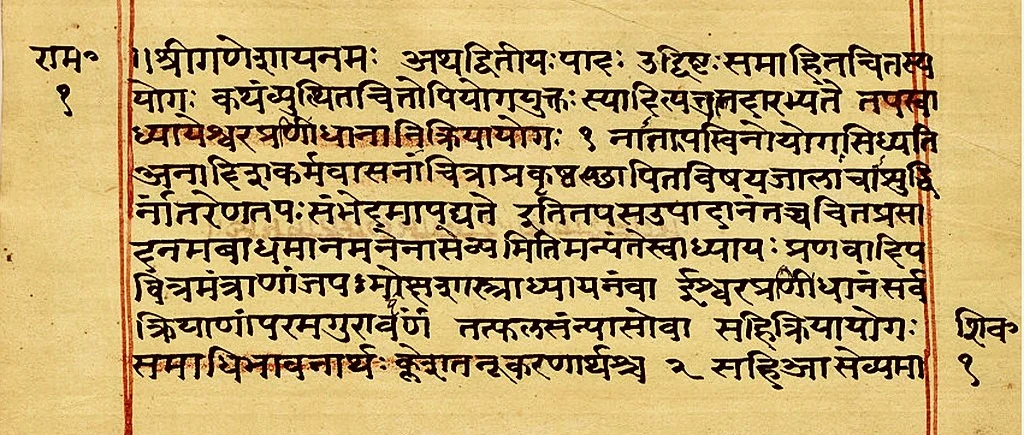 राम॰ ॥श्रीगणेशायनमः अथद्वितीयःपादः उद्दिष्टःसमाहितचितस्य
१ योगः कथंव्युत्थितचितोपियोगयुक्तःस्यादित्येतत्तदारभ्यते तपस्वा
ध्यायेश्वरप्रणीधानानिक्रियायोगः १ नातापस्विनोयोगःसिध्यति
अनादिक्लशकर्मवासनाचित्राप्रकृष्टस्थापितविषयजालाचाशुद्धि
र्नातरेणतपःसंभेदमापद्यते इतितपसउपादानंतच्चचितप्रसा
दनमबाधमानमनेनासेव्यमितिमन्यंतेस्वाध्यायः प्रणवादिप
वित्रमंत्राणांजपःमोक्षशास्त्राध्यायनंवा ईश्वरप्रणीधानंसर्व
क्रियाणांपरमगुरावर्पणं तत्फलसंन्यासोवा सहिक्रियायोगः शिव॰
समाधिभावनार्थः क्लेशतनूकरणार्थश्च २ सहिआसेव्यमा १